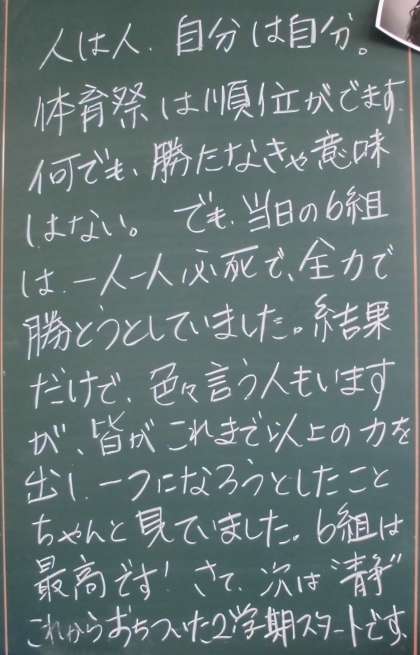 人は人、自分は自分。
体育祭は順位がでます。
何でも、勝たなきゃ意味
はない。でも、当日の6組
は、一人一人必死で、全力で
勝とうとしていました。結果
だけで、色々言う人もいます
が、皆がこれまで以上の力を
出し、一つになろうとしたこと
ちゃんと見ていました。6組は
最高です! さて、次は“静”
これからおちついた2学期スタートです、